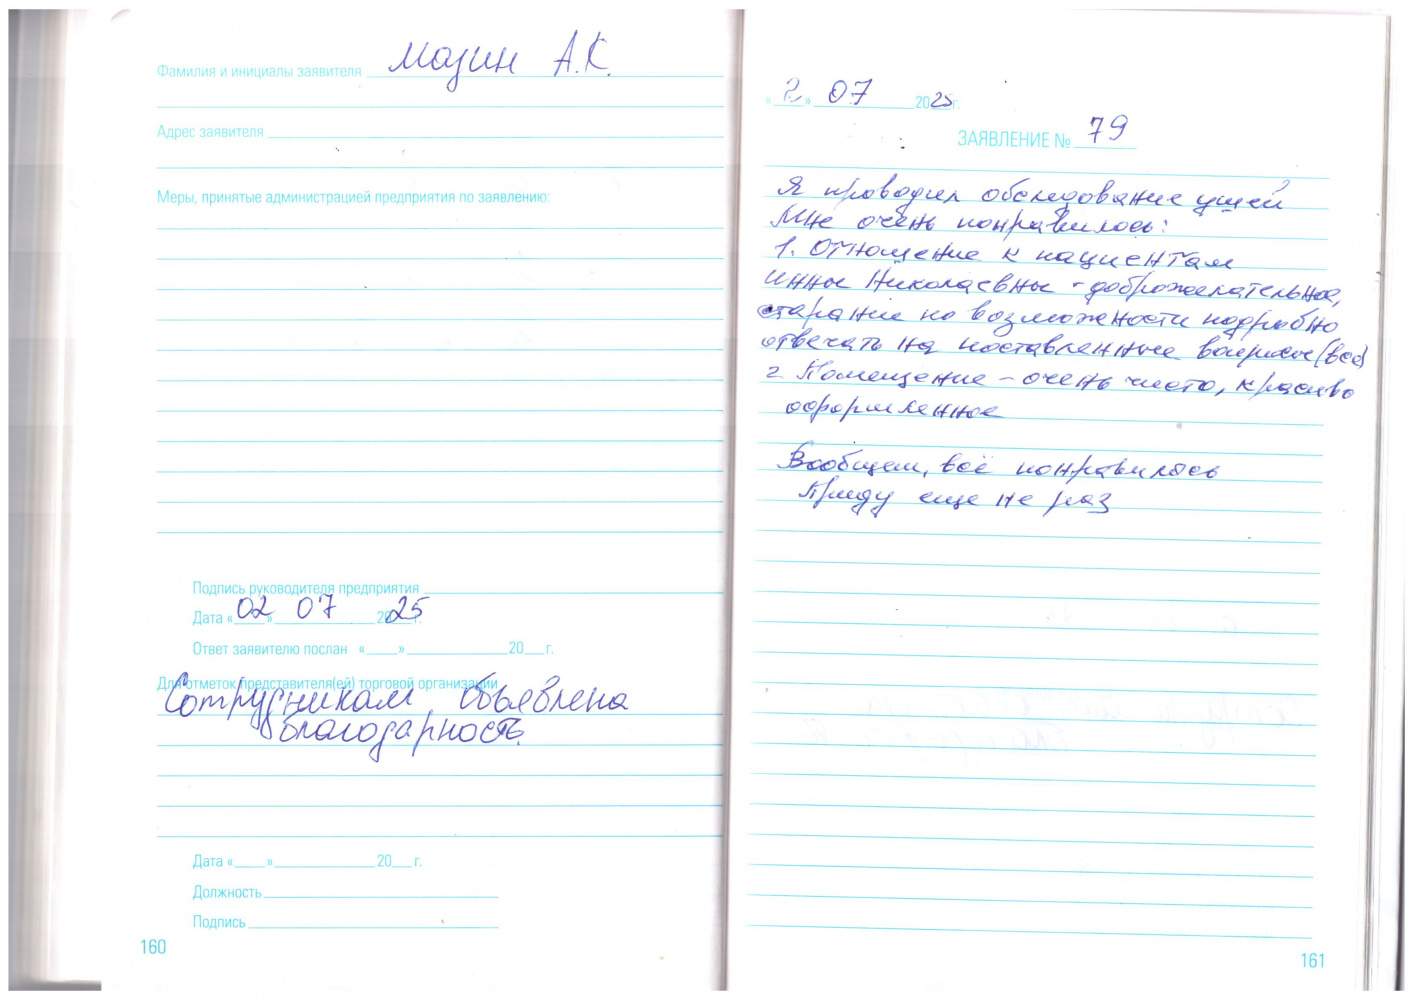 Фамилия и инициалы заявителя Мазин А.К.
Адрес заявителя
Меры, принятые администрацией предприятия по заявлению:
Подпись руководителя предприятия
Дата «02» 07 2025 г.
Ответ заявителю послан «___» ___ 20__ г.
Для отметок представителя(ей) торговой организации
Сотрудникам объявлена
благодарность.
Дата «___» ___ 20__ г.
Должность
Подпись
160
«2» 07 2025г.
ЗАЯВЛЕНИЕ № 79
Я проводил обследование ушей
Мне очень понравилось:
1. Отношение к пациентам
Инны Николаевны - доброжелательное,
старание по возможности подробно
отвечать на поставленные вопросы (все)
2 Помещение - очень чисто, красиво
оформленное
Вообщем, всё понравилось
Приду еще не раз
161